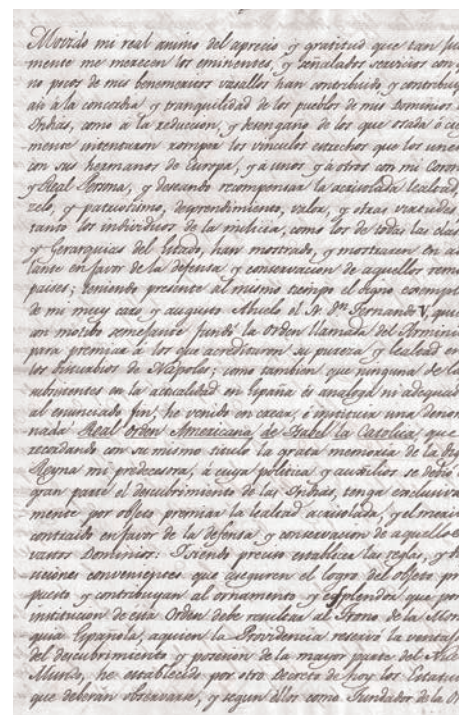 Movido mi real animo del aprecio y gratitud que tan jus
mente me merecen los eminentes, y señalados servicios con q
no pocos de mis benemeritos vasallos han contribuido y contribuy
asi à la concordia y tranquilidad de los pueblos de mis Dominios
Indias, como à la reduccion, y desengaño de los que osada ó cie
mente intentaron romper los vinculos estrechos que los unen
con sus hermanos de Europa, y á unos y á otros con mi Coron
y Real Persona, y deseando recompensar la acrisolada lealtad,
zelo, y patriotismo, desprendimiento, valor, y otras virtudes
tanto los individuos de la milicia, como los de todas las clas
y Gerarquias del Estado, han mostrado, y mostraren en ade
lante en favor de la defensa y conservacion de aquellos remo
paises; teniendo presente al mismo tiempo el digno exemplo
de mi muy caro y augusto Abuelo el S. Dn. Fernando V, que
con motibo semejante fundó la orden llamada del Arminio
para premiar à los que acreditaron su pureza y lealtad en
los disturbios de Nàpoles; como tambien que ninguna de la
subsistentes en la actualidad en España es analoga ni adequad
al enunciado fin; he venido en crear, é instituir una denom
nada Real Orden Americana de Isabel la Catolica, que
recordando con su mismo titulo la grata memoria de la
Reyna mi predecesora, á cuya politica y auxilios se debió
gran parte el descubrimiento de las Indias, tenga exclusiva
mente por objeto premiar la lealtad acrisolada, y el merito
contraido en favor de la defensa y conservacion de aquellos
vastos Dominios: I siendo preciso establecer las reglas, y
siciones convenientes que aseguren el logro del objeto pro
puesto y contribuyan al ornamento y esplendor que por
institucion de esta Orden debe resultar al Trono de la Mon
quia Española, a quien la Providencia reservó la ventaja
del descubrimiento y posesion de la mayor parte del
Mundo, he establecido por otro Decreto de hoy los Estatu
que deberàn observarse, y segun ellos como Fundador de la O